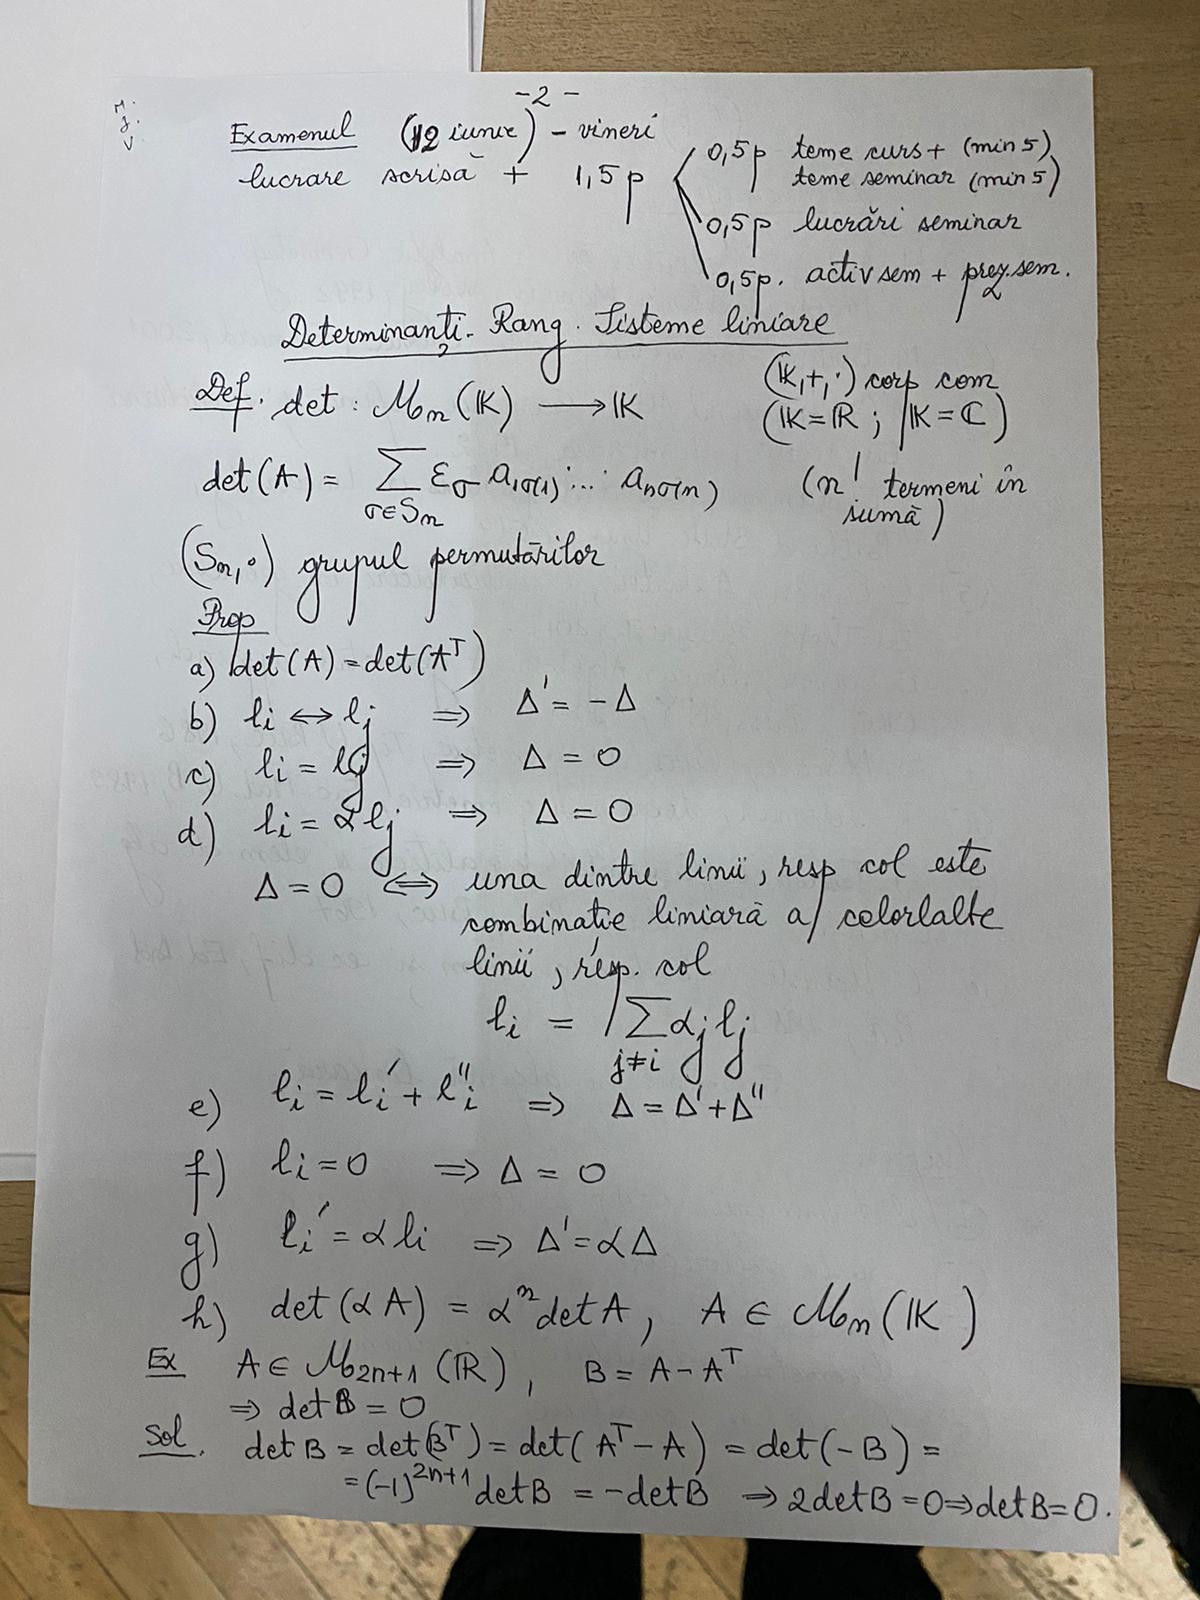 - 2 -
M.
J.
V
Examenul (12 iunie) - vineri
lucrare scrisă + 1,5p
0,5p teme curs + (min 5)
teme seminar (min 5)
0,5p lucrări seminar
0,5p. activ sem + prez. sem.
Determinanți. Rang. Sisteme liniare
Def. det : Mn(K) → K (K,+,·) corp com
(K=R ; K=C)
det(A) = Σ εσ a1σ(1)·...·anσ(n) (n! termeni în
σ∈Sn sumă)
(Sn,∘) grupul permutărilor
Prop
a) det(A) = det(A^T)
b) li ↔ lj ⇒ Δ' = -Δ
c) li = lj ⇒ Δ = 0
d) li = αlj ⇒ Δ = 0
Δ = 0 ⇔ una dintre linii, resp col este
combinație liniară a celorlalte
linii, resp. col
li = Σ αj lj
j≠i
e) li = li' + li'' ⇒ Δ = Δ' + Δ''
f) li = 0 ⇒ Δ = 0
g) li' = α li ⇒ Δ' = αΔ
h) det(αA) = α^n det A, A ∈ Mn(K)
Ex A ∈ M2n+1(R), B = A - A^T
⇒ det B = 0
Sol. det B = det(B^T) = det(A^T - A) = det(-B) =
= (-1)^2n+1 det B = -det B ⇒ 2 det B = 0 ⇒ det B = 0.